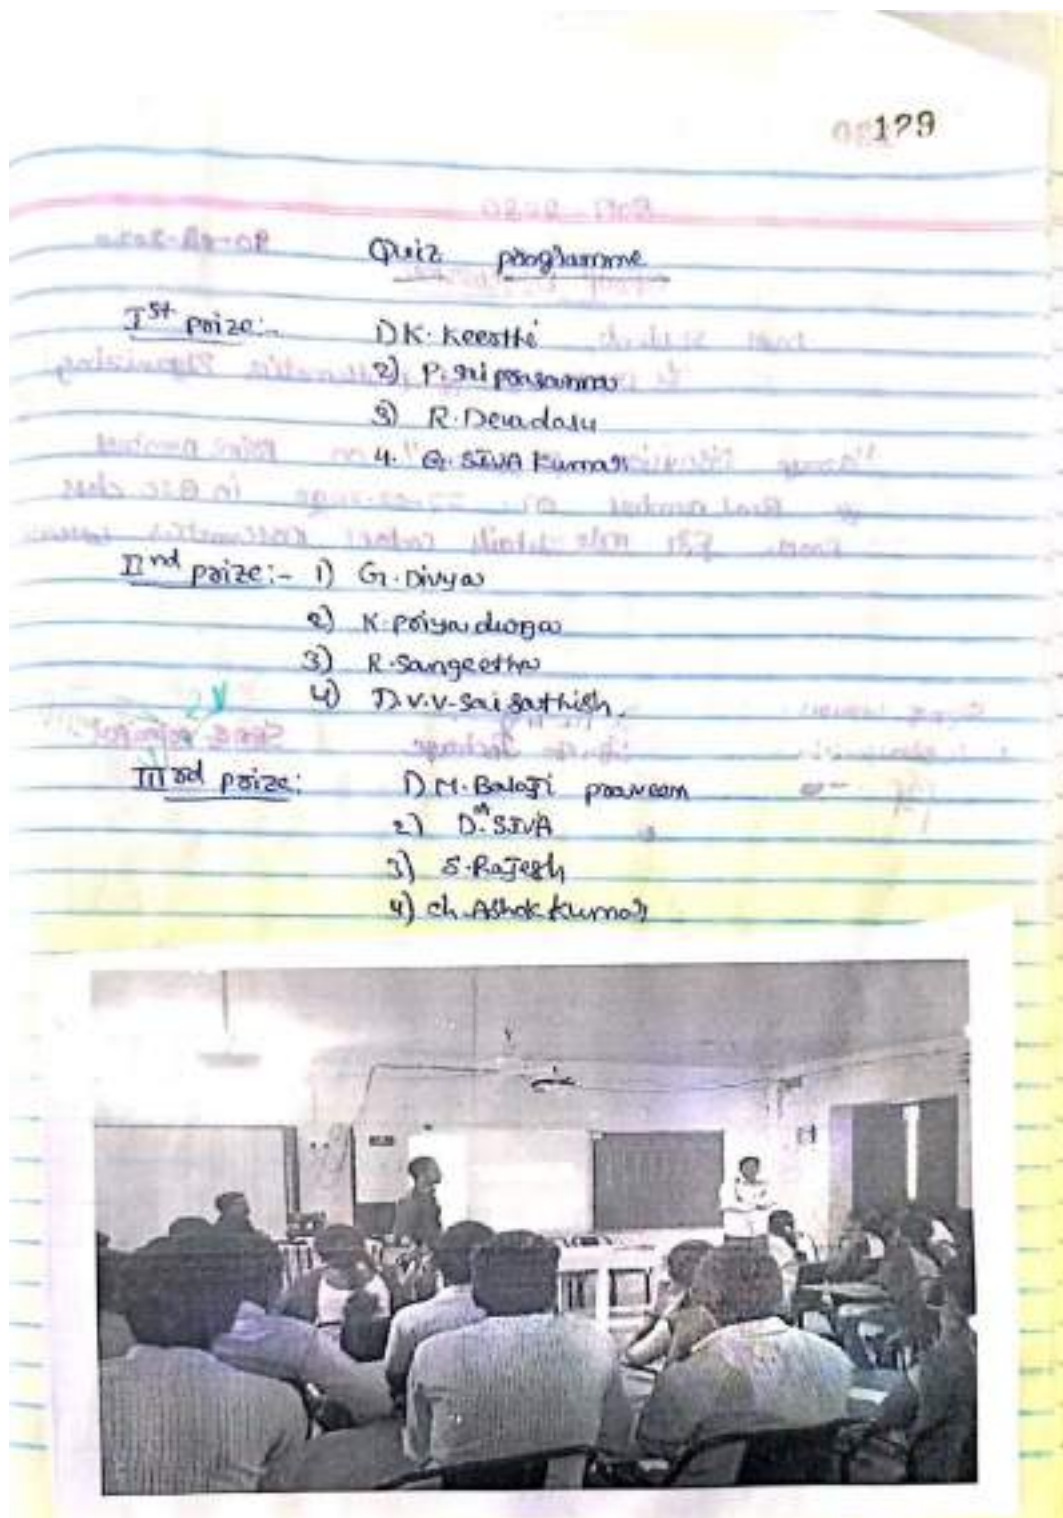 129
Quiz programme
Ist prize:-
1) K. Keerthi
2) P. Sri prasanna
3) R. Devadasu
4. G. SIVA Kumar
IInd prize:- 1) G. Divya
2) K. priya durga
3) R. Sangeetha
4) D.V.V. Sai Sathish.
IIIrd prize: 1) M. Balaji praveen
2) D. SIVA
3) S. Rajesh
4) ch. Ashok Kumar